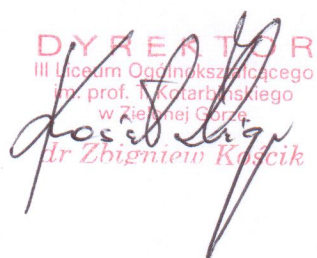 DYREKTOR
III Liceum Ogólnokształcącego
im. prof. T. Kotarbińskiego
w Zielonej Górze
dr Zbigniew Kościk